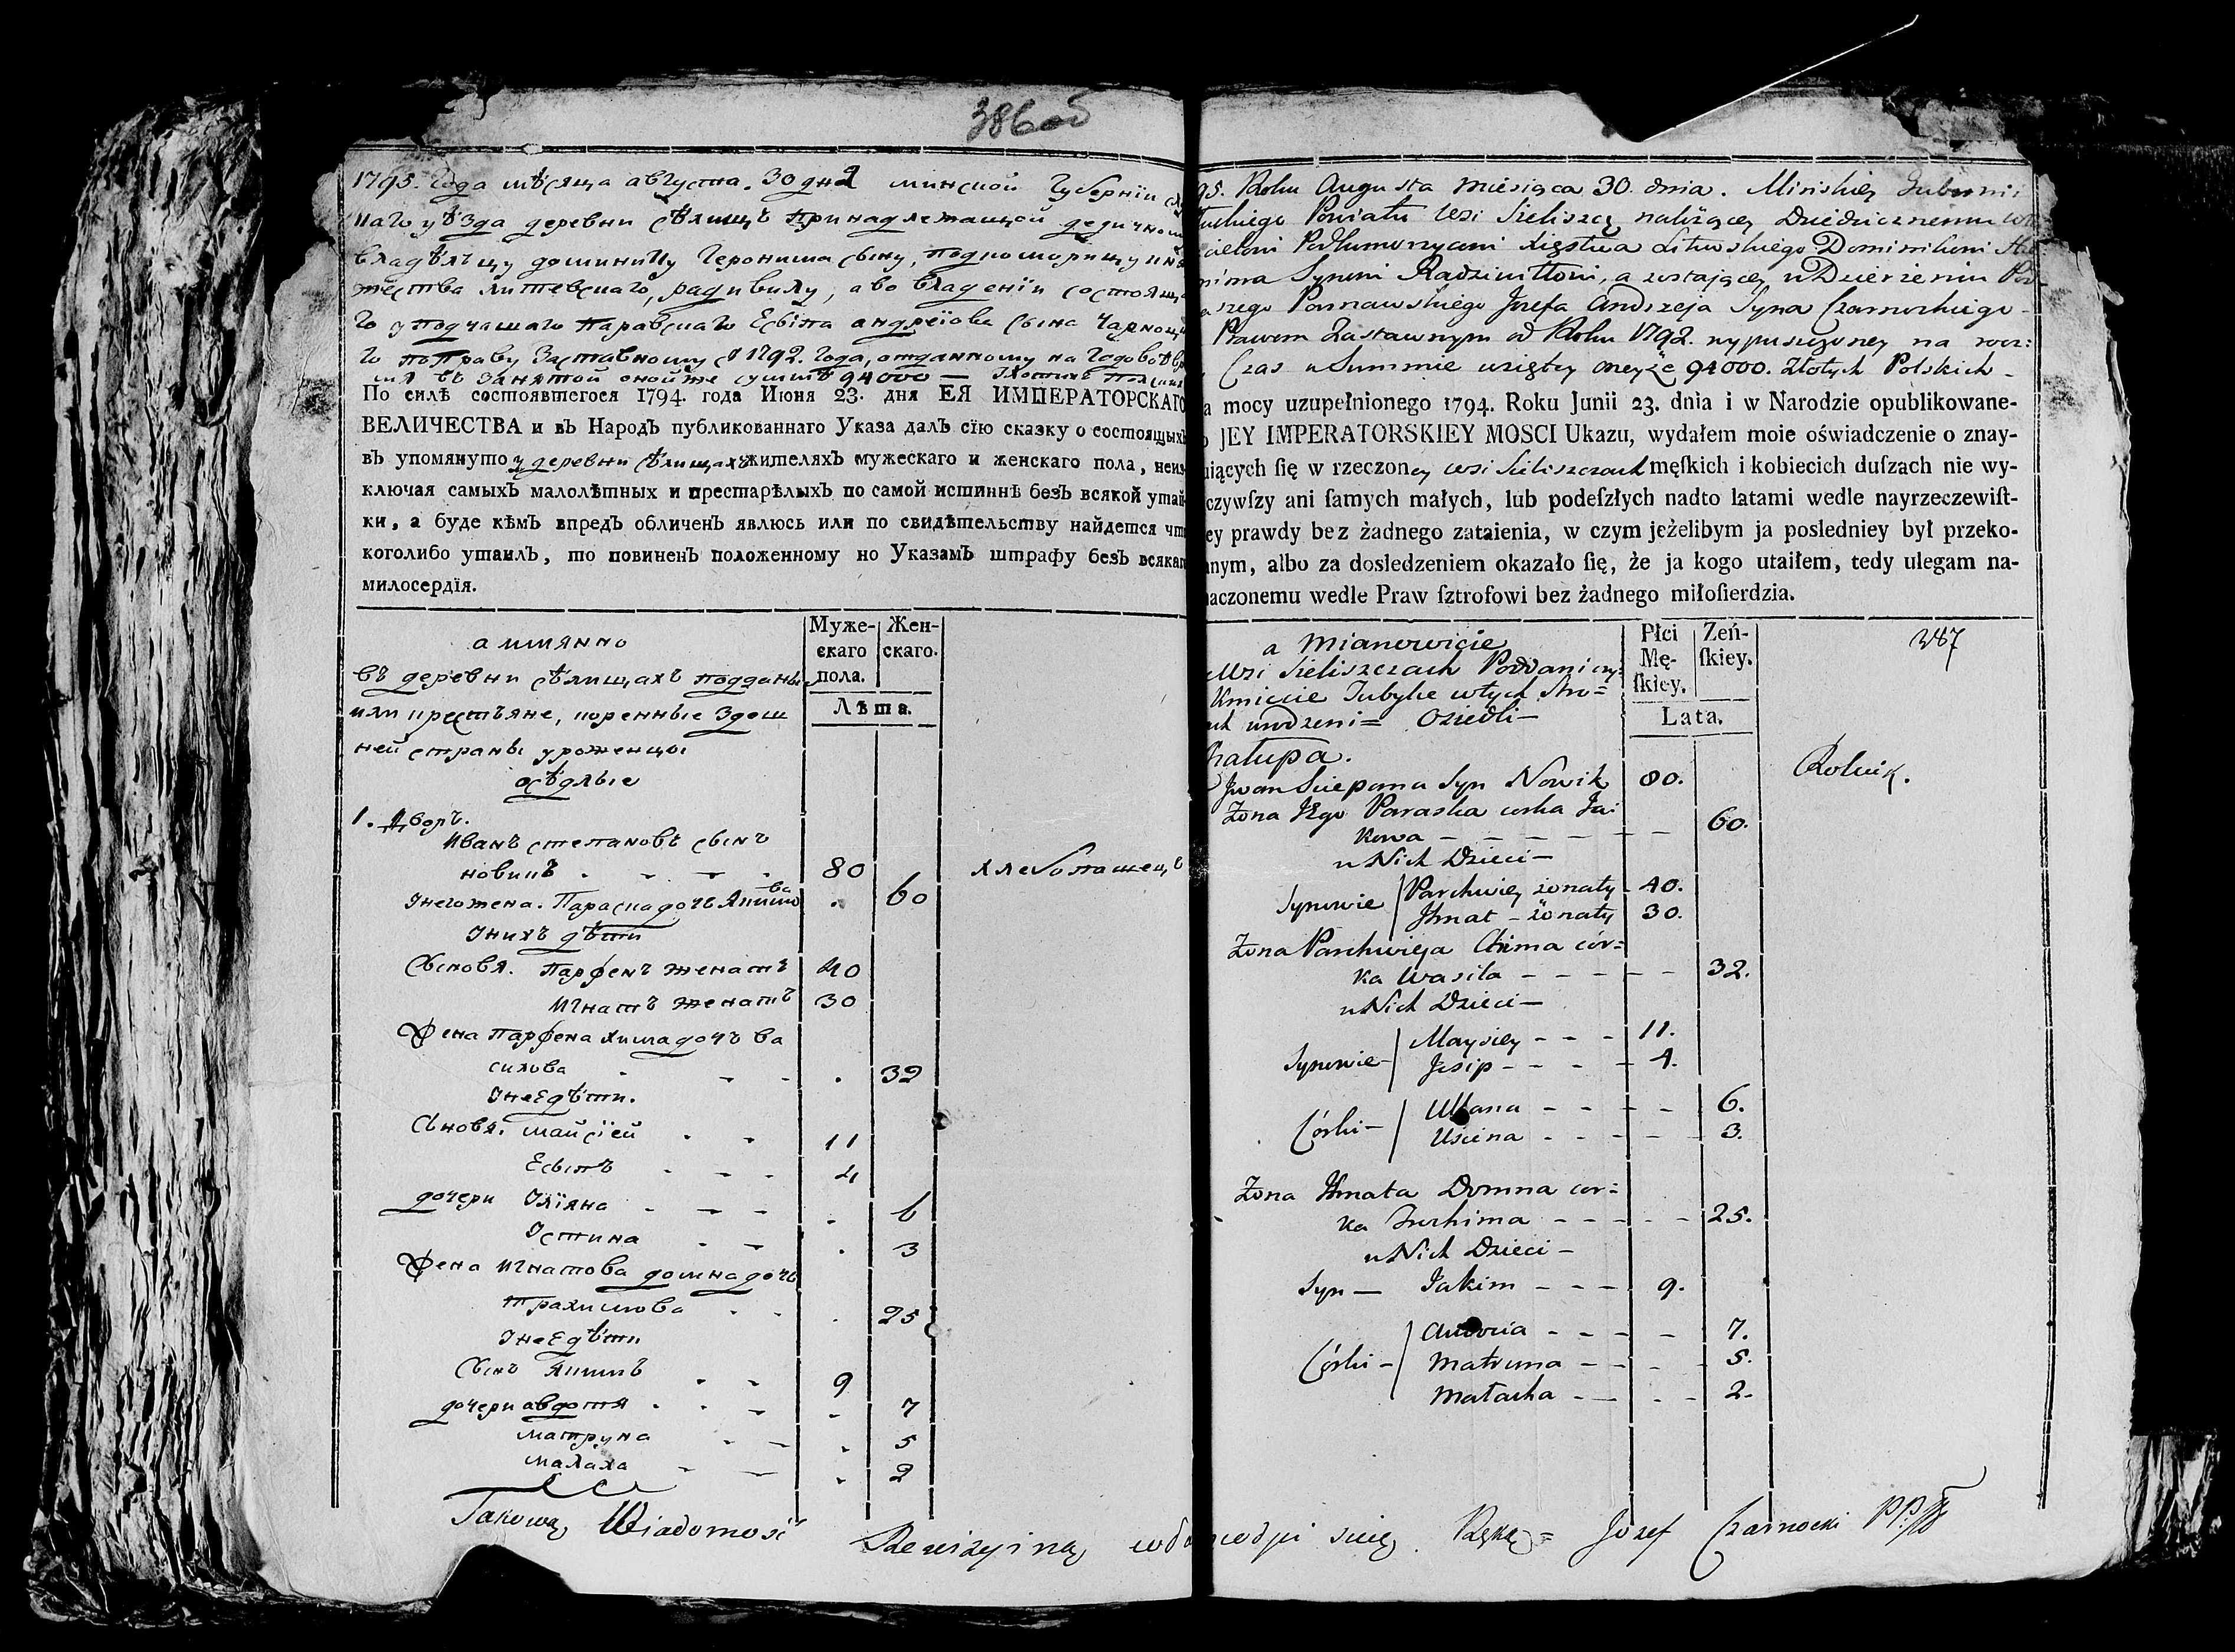 386об
1795. Года мѣсяца августа. 30 дня минской Губернїи
наго уѣзда деревни сѣлищъ принадлежащой дедичном
владѣльцу доминику Геронима сыну, подкоморищу кня
жества литевскаго, радивилу, а во владенїи состоящ
го у подчашаго паравскаго Есыпа андреїова сына Чарноц
го по праву Заставному с 1792. Года, отданному на Годовоѣ вр
мя въ занятой оной же суммѣ 94000 —
По силѣ состоявшегося 1794. года Июня 23. дня ЕЯ ИМПЕРАТОРСКАГО
ВЕЛИЧЕСТВА и въ Народъ публикованнаго Указа далъ сїю сказку о состоящыхъ
въ упомянуто у деревни сѣлищахъ жителяхъ мужескаго и женскаго пола, неиз
ключая самыхъ малолѣтных и престарѣлыхъ по самой истиннѣ безъ всякой утай
ки, а буде кѣмъ впредъ обличенъ явлюсь или по свидѣтельству найдется что
коголибо утаилъ, то повиненъ положенному по Указамъ штрафу безъ всякаг
милосердїя.
а имянно
въ деревни сѣлищахъ подданы
или крестьяне, коренные Здеш
ней страны уроженцы
осѣдлые
Муже-скаго пола. Жен-скаго.
Лѣта.
1. Дворъ.
Иванъ степановъ сынъ
новикъ 80 хлебопашецъ
Інегожена. Параска дочь Якимова 60
Інихъ дѣти
Сыновя. Парфенъ женатъ 40
Игнатъ женатъ 30
Жена Парфена химадочъ ва
силова 32
Інеедѣти.
Сыновя. майсїей 11
Есыпъ 4
дочери Улїяна 6
Устина 3
Жена игнатова домна дочь
трахимова 25
Інеедѣти
Сынъ Якимъ 9
дочери авдотя 7
матруна 5
малаха 2
95. Roku Augusta miesiąca 30. dnia. Minskiey Gubernii
łuckiego Powiatu wsi Sieliszcz należącey Dziedzicznemu
cielowi Podkomorzycowi Xięstwa Litewskiego Dominikowi
nima Synowi Radziwiłłowi, a zostającey w Dzierżeniu Pod
szego Parnawskiego Jozefa Andrzeja Syna Czarnockiego
Prawem Zastawnym od Roku 1792. wypuszczoney na rocz:
Czas w Summie wziętey oneyże 94000. Złotych Polskich
a mocy uzupełnionego 1794. Roku Junii 23. dnia i w Narodzie opublikowane-
o JEY IMPERATORSKIEY MOSCI Ukazu, wydałem moie oświadczenie o znay-
uiących ſię w rzeczoney wsi Sieliszczach męſkich i kobiecich duſzach nie wy-
czywſzy ani ſamych małych, lub podeſzłych nadto latami wedle nayrzeczewiſt-
ey prawdy bez żadnego zataienia, w czym jeżelibym ja posledniey był przeko-
anym, albo za dosledzeniem okazało ſię, że ja kogo utaiłem, tedy ulegam na-
naczonemu wedle Praw ſztrofowi bez żadnego miłoſierdzia.
a Mianowicie
Wsi Sieliszczach Poddani czy:
Kmiecie Tubylce w tych Stro=
ach urodzeni= Osiedli—
Płci Mę-ſkiey. Zeń-ſkiey.
Lata.
387
Chałupa.
Jwan Sciepana Syn Nowik 80. Rolnik.
Żona Jego Paraska corka Ja:
kowa 60.
u Nich Dzieci—
Synowie Parchwiey żonaty 40.
Jhnat – żonaty 30.
Żona Parchwieja Chima cór=
ka Wasila 32.
u Nich Dzieci—
Synowie— Maysiey 11.
Jesip 4.
Córki— Ullana 6.
Uscina 3.
Żona Jhnata Domna cor=
ka Trochima 25.
u Nich Dzieci—
Syn— Jakim 9.
Córki— Audocia 7.
Matruna 5.
Małacha 2.
Takową Wiadomość Rewizyiną Ręką= Jozef Czarnocki